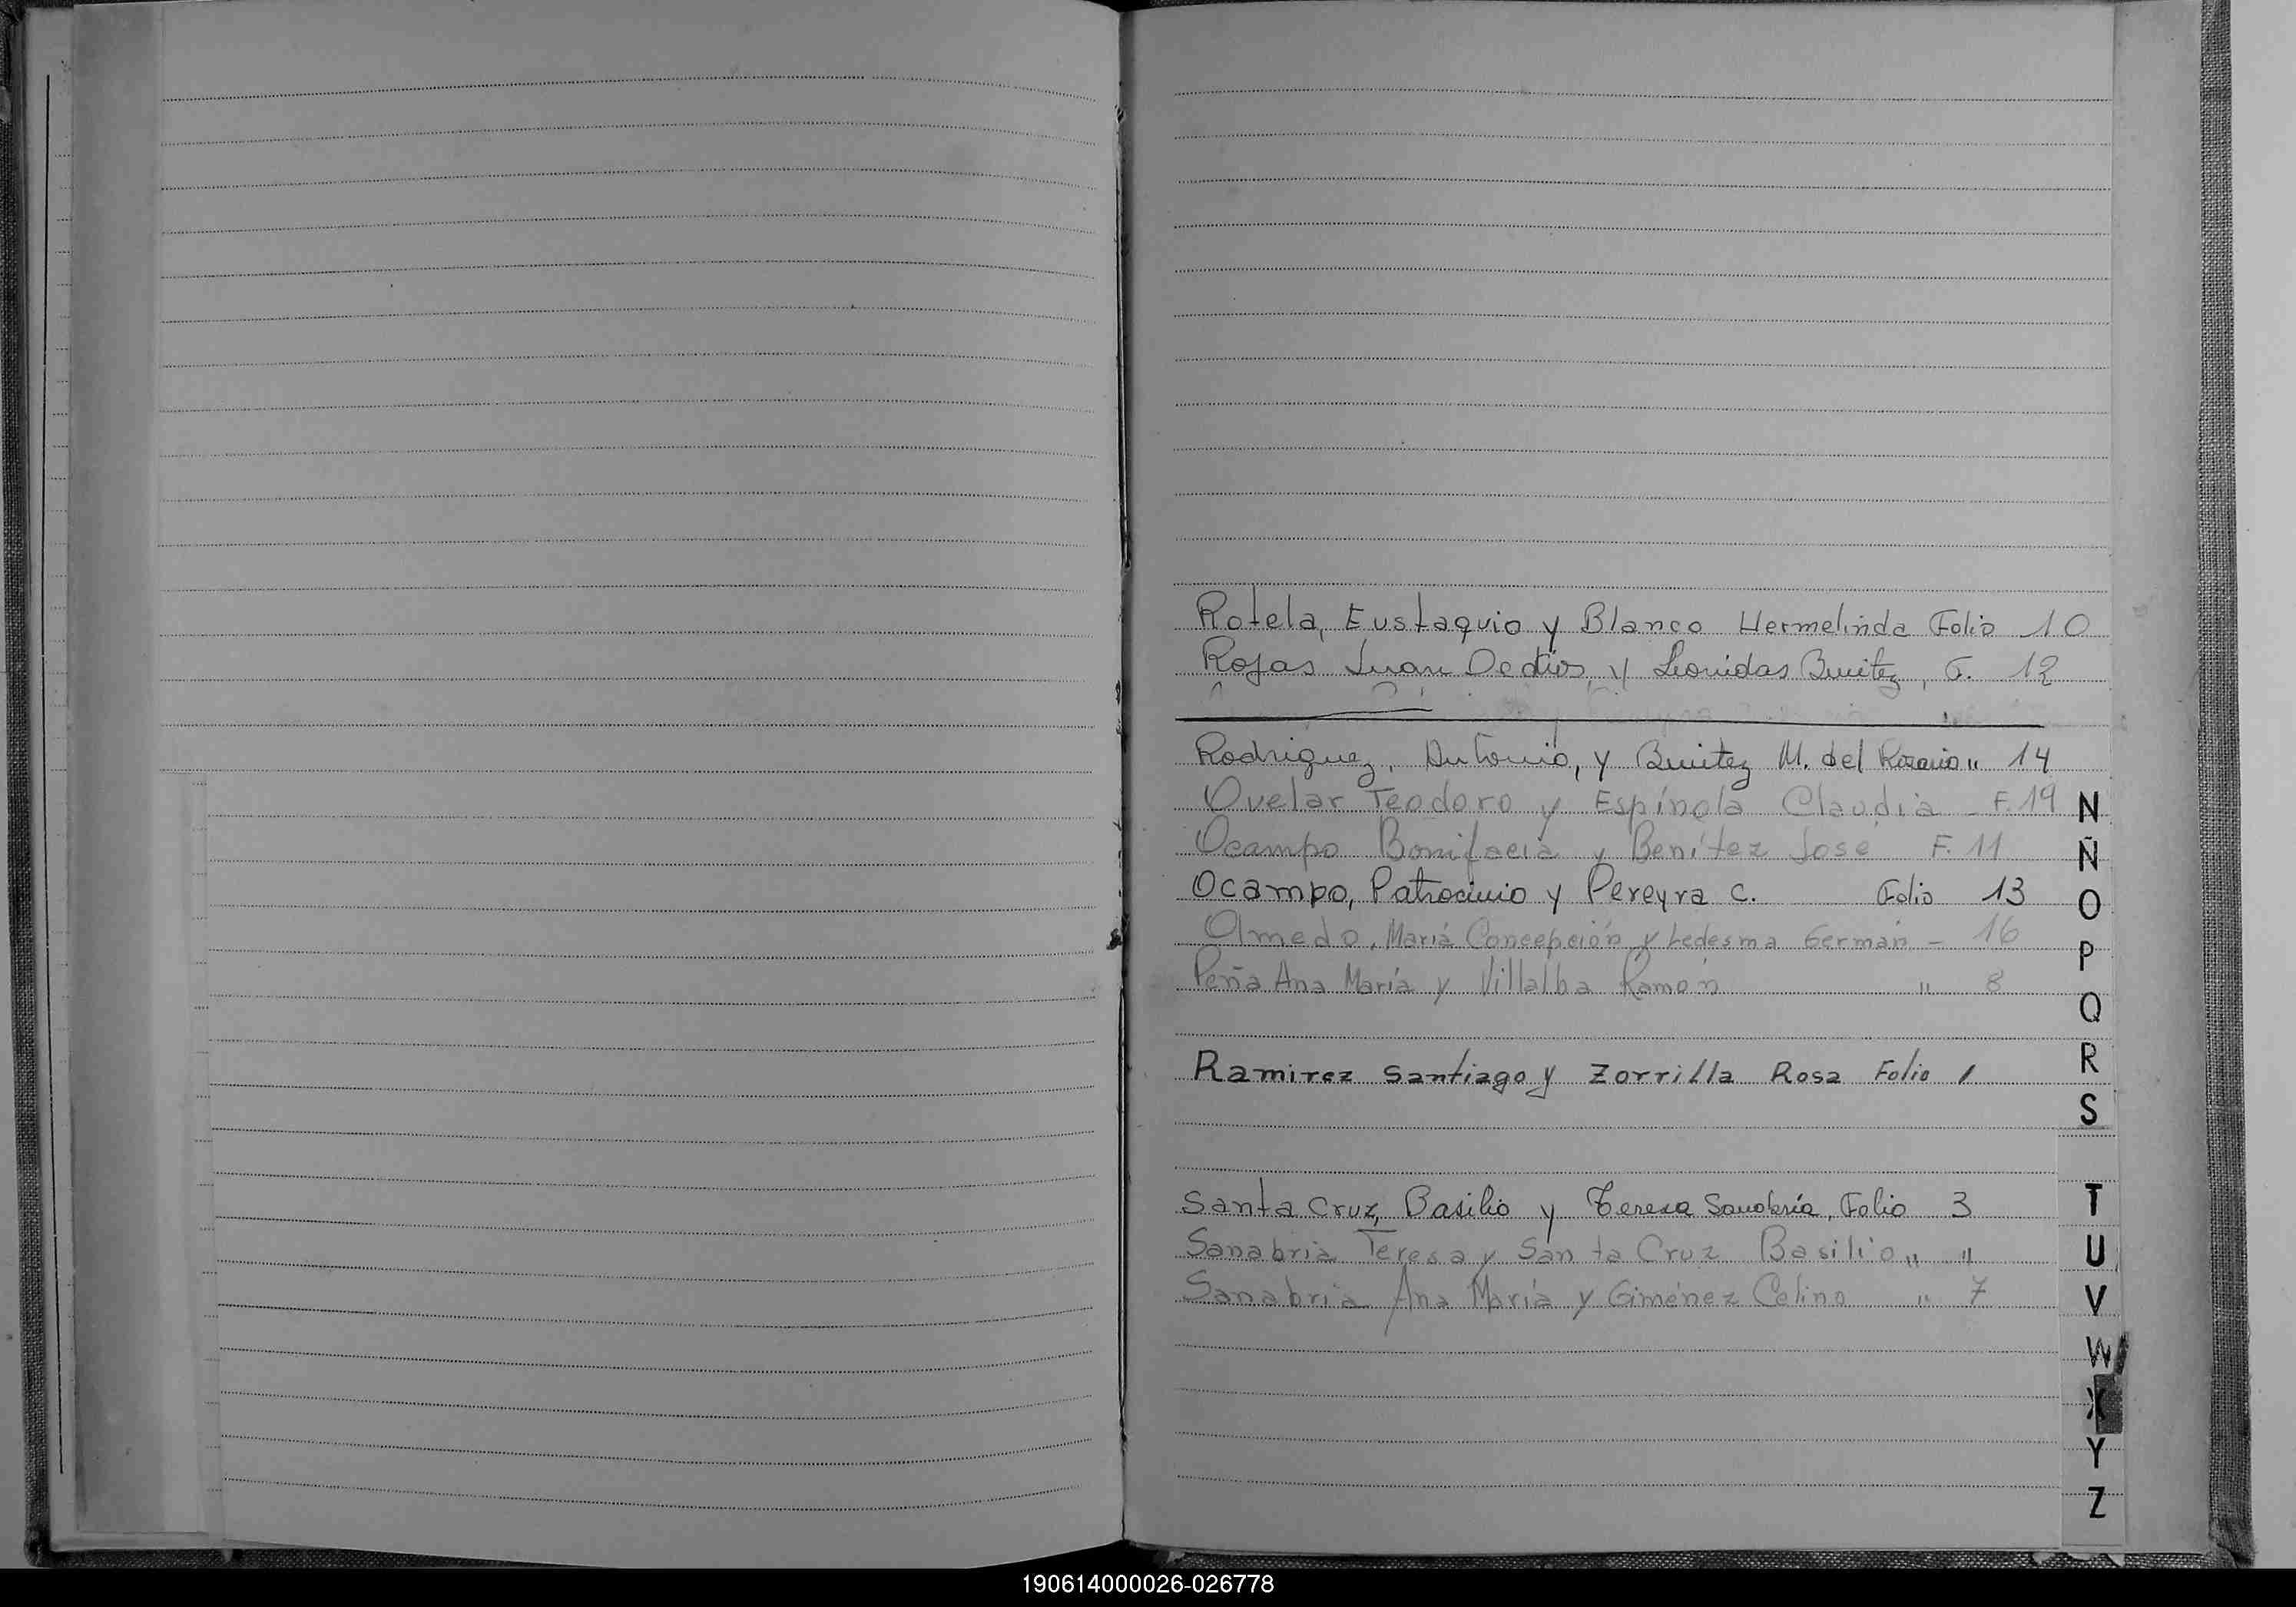 Rotela, Eustaquio y Blanco Hermelinda Folio 10
Rojas Juan Dedios, y Leonidas Benitez, F. 12
Rodriguez, Antonio, y Benitez M. del Rosario " 14
Ovelar Teodoro y Espínola Claudia - F. 19
Ocampo Bonifacia y Benítez José F. 11
Ocampo, Patrocinio y Pereyra C. Folio 13
Olmedo, María Concepción y Ledesma Germán - 16
Peña Ana María y Villalba Ramón " 8
Ramirez Santiago y Zorrilla Rosa Folio 1
Santa Cruz, Basilio y Teresa Sanabria, Folio 3
Sanabria Teresa y Santa Cruz Basilio " "
Sanabria Ana María y Giménez Celino " 7
N
Ñ
O
P
Q
R
S
T
U
V
W
X
Y
Z
190614000026-026778